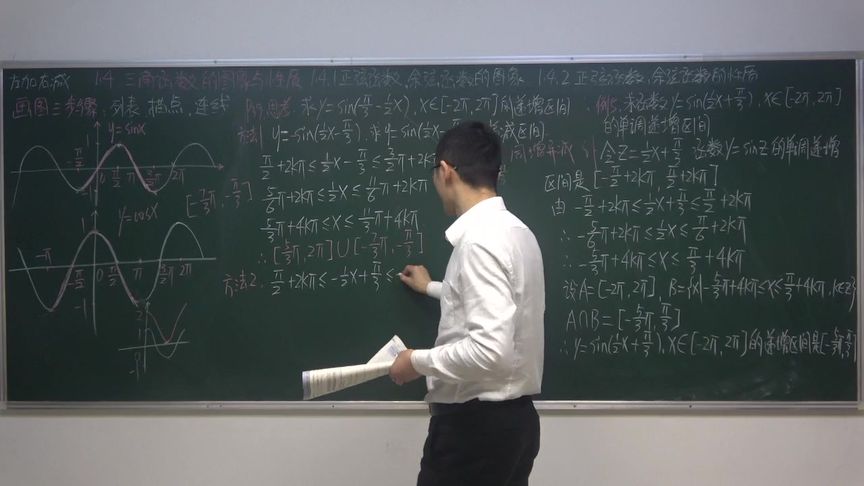 左加右减 1.4 三角函数的图象与性质 1.4.1 正弦函数,余弦函数的图象 1.4.2 正弦函数,余弦函数的性质
画图三步骤:列表,描点,连线
y=sinx
-π/2 0 π/2 π 3/2π 2π
1
-1
y=cosx
-π -π/2 0 π/2 π 3/2π 2π
1
-1
求y=sin(π/3-½x), x∈[-2π,2π]的递增区间
y=-sin(½x-π/3),求y=sin(½x-
π/2+2kπ≤½x-π/3≤3/2π+2k
5/6π+2kπ≤½x≤11/6π+2kπ
5/3π+4kπ≤x≤11/3π+4kπ
∴[5/3π,2π]∪[-7/3π,-π/3]
[-7/3π,-π/3]
方法2. π/2+2kπ≤-½x+π/3≤
同增异减
例5.求函数y=sin(½x+π/3), x∈[-2π,2π]
的单调递增区间
令Z=½x+π/3 函数y=sinZ的单调递增
区间是[-π/2+2kπ, π/2+2kπ]
由-π/2+2kπ≤½x+π/3≤π/2+2kπ
∴-5/6π+2kπ≤½x≤π/6+2kπ
∴-5/3π+4kπ≤x≤π/3+4kπ
设A=[-2π,2π] B={x|-5/3π+4kπ≤x≤π/3+4kπ,k∈Z}
A∩B=[-5/3π,π/3]
∴y=sin(½x+π/3),x∈[-2π,2π]的递增区间是[-5/3π,π/3]